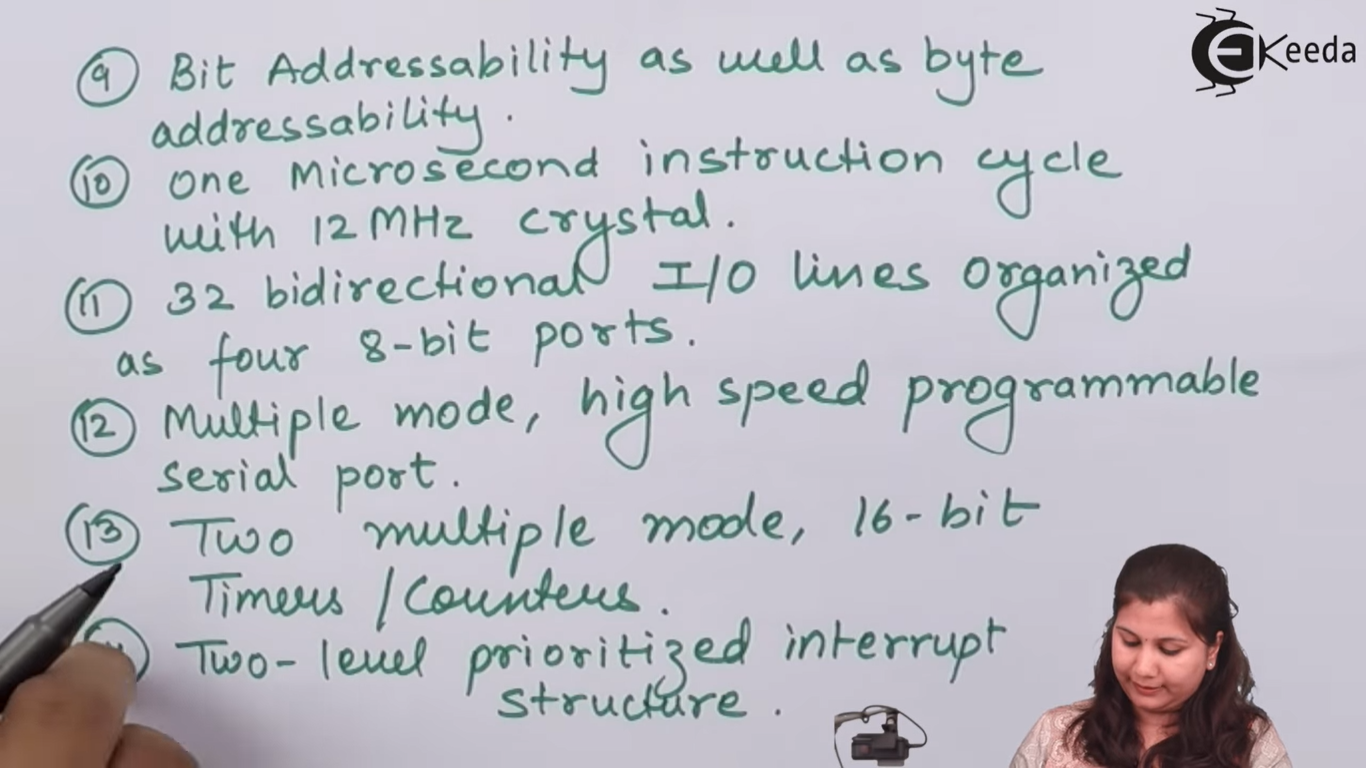 Keeda
9 Bit Addressability as well as byte
addressability.
10 One Microsecond instruction cycle
with 12 MHz crystal.
11 32 bidirectional I/O lines organized
as four 8-bit ports.
12 Multiple mode, high speed programmable
serial port.
13 Two multiple mode, 16-bit
Timers / Counters.
Two-level prioritized interrupt
structure.